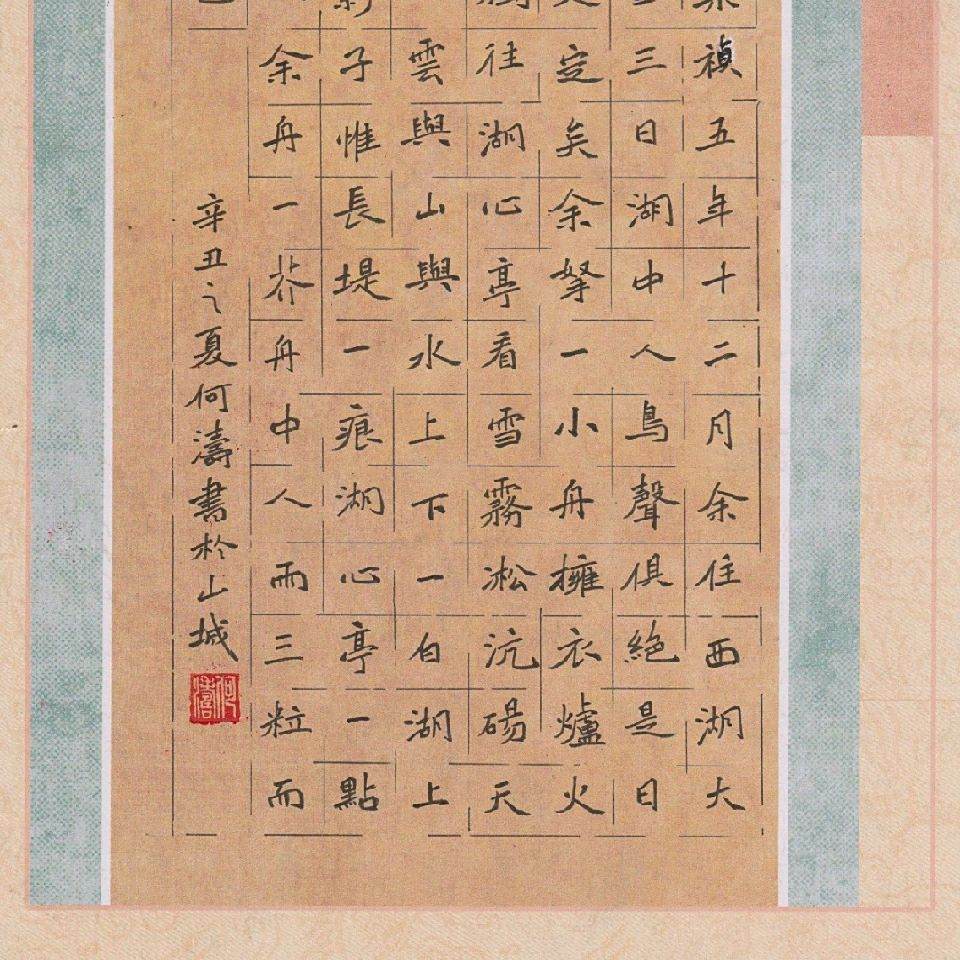 禎五年十二月余住西湖大
三日湖中人鳥聲俱絕是日
定矣余拏一小舟擁衣爐火
往湖心亭看雪霧淞沆碭天
雲與山與水上下一白湖上
影子惟長堤一痕湖心亭一點
余舟一芥舟中人而三粒而
辛丑之夏何濤書於山城
何濤